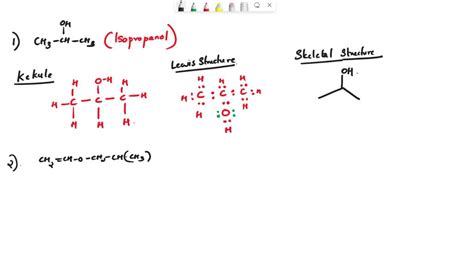 OH
1) CH₃-CH-CH₃ (Isopropanol)
Kekule
H O-H H
H-C-C-C-H
H H H
Lewis Structure
H H H
H:C:C:C:H
H O H
H
Skeletal Structure
OH
2) CH₂=CH-O-CH₂-CH(CH₃)